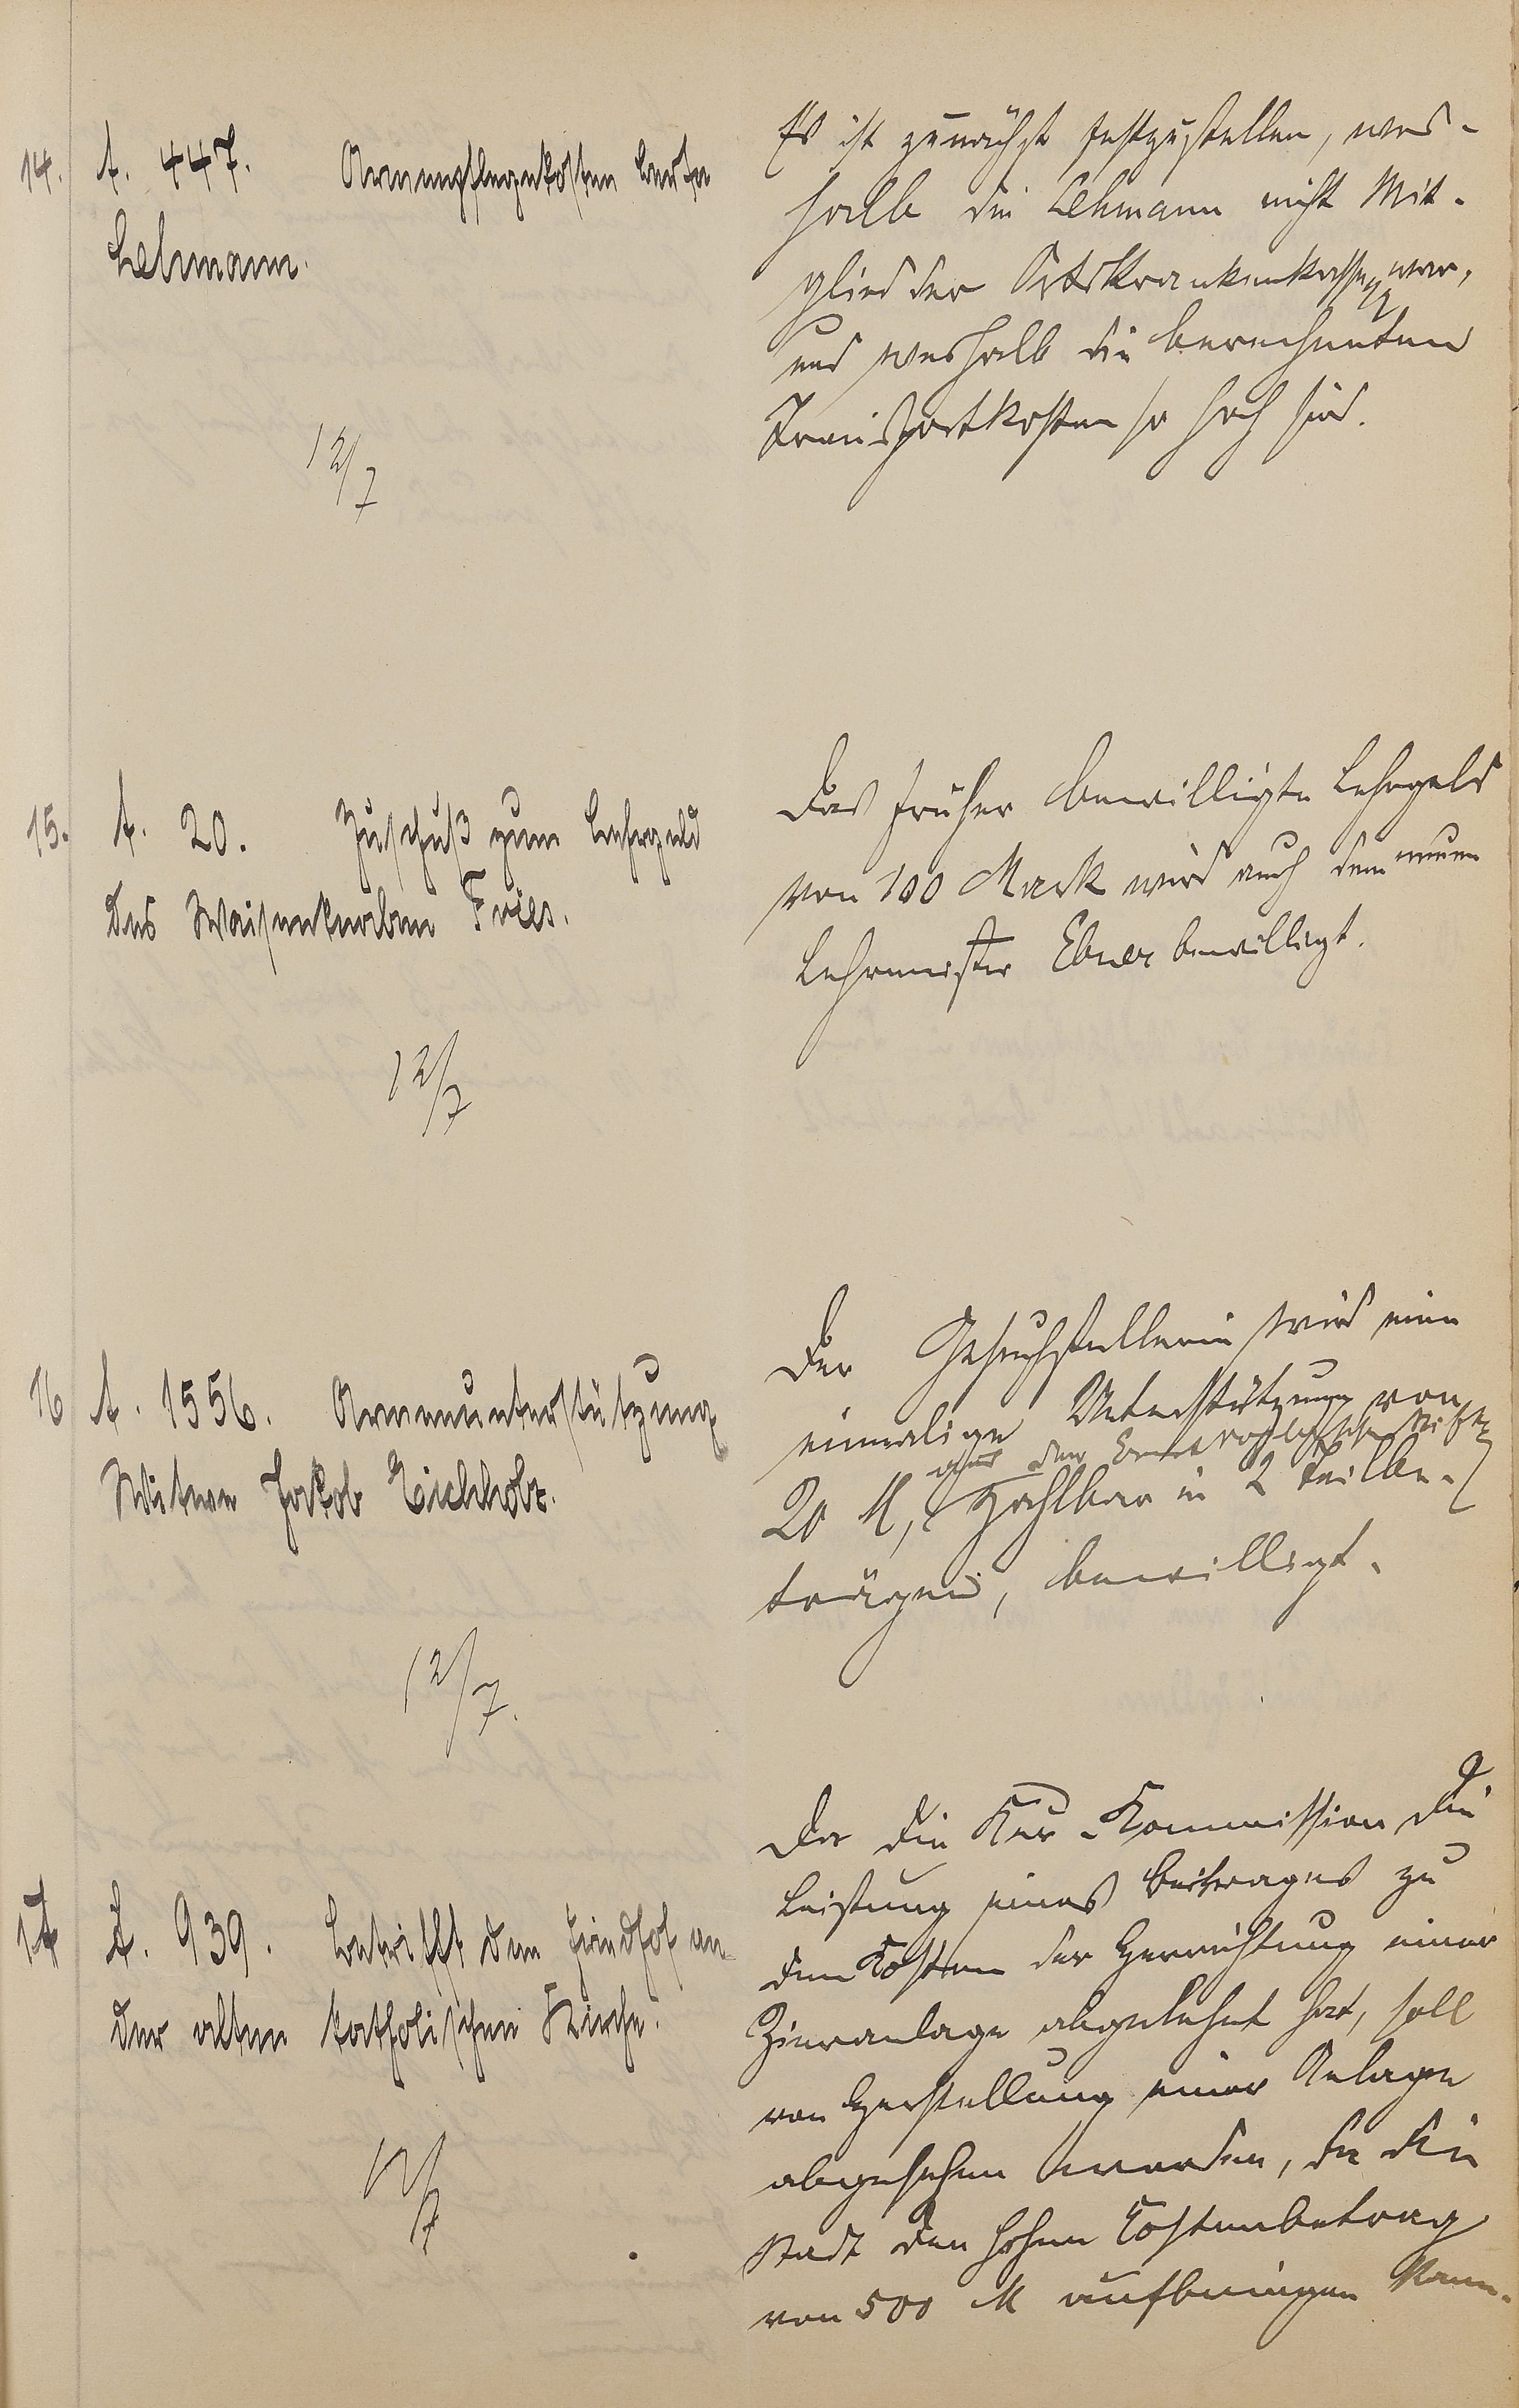 14. A. 447. Armenpflegekosten Berta
Lehmann.
12/7
Es ist zunächst festzustellen, wes-
halb die Lehmann nicht Mit-
glied der Ortskrankenkasse war,
und weshalb die berechneten
Transportkosten so hoch sind.
15. A. 20. Zuschuß zum Lehrgeld
des Waisenknaben Fries.
12/7
Das früher bewilligte Lehrgeld
von 100 Mark wird auch dem neuen
Lehrmeister Ebner bewilligt.
16 A. 1556. Armenunterstützung
Witwe Jakob Eichholz.
12/7.
Der Gesuchstellerin wird eine
einmalige Unterstützung von
aus der
20 M, zahlbar in 2 Teilbe-
trägen, bewilligt.
17 A. 939. Betrifft den Friedhof an
der alten katholischen Kirche.
12/7
Da die Kur-Kommission die
Leistung eines Beitrages zu
den Kosten der Herrichtung einer
Zieranlage abgelehnt hat, soll
von Herstellung einer Anlage
abgesehen werden, da die
Stadt den hohen Kostenbetrag
von 500 M aufbringen kann.